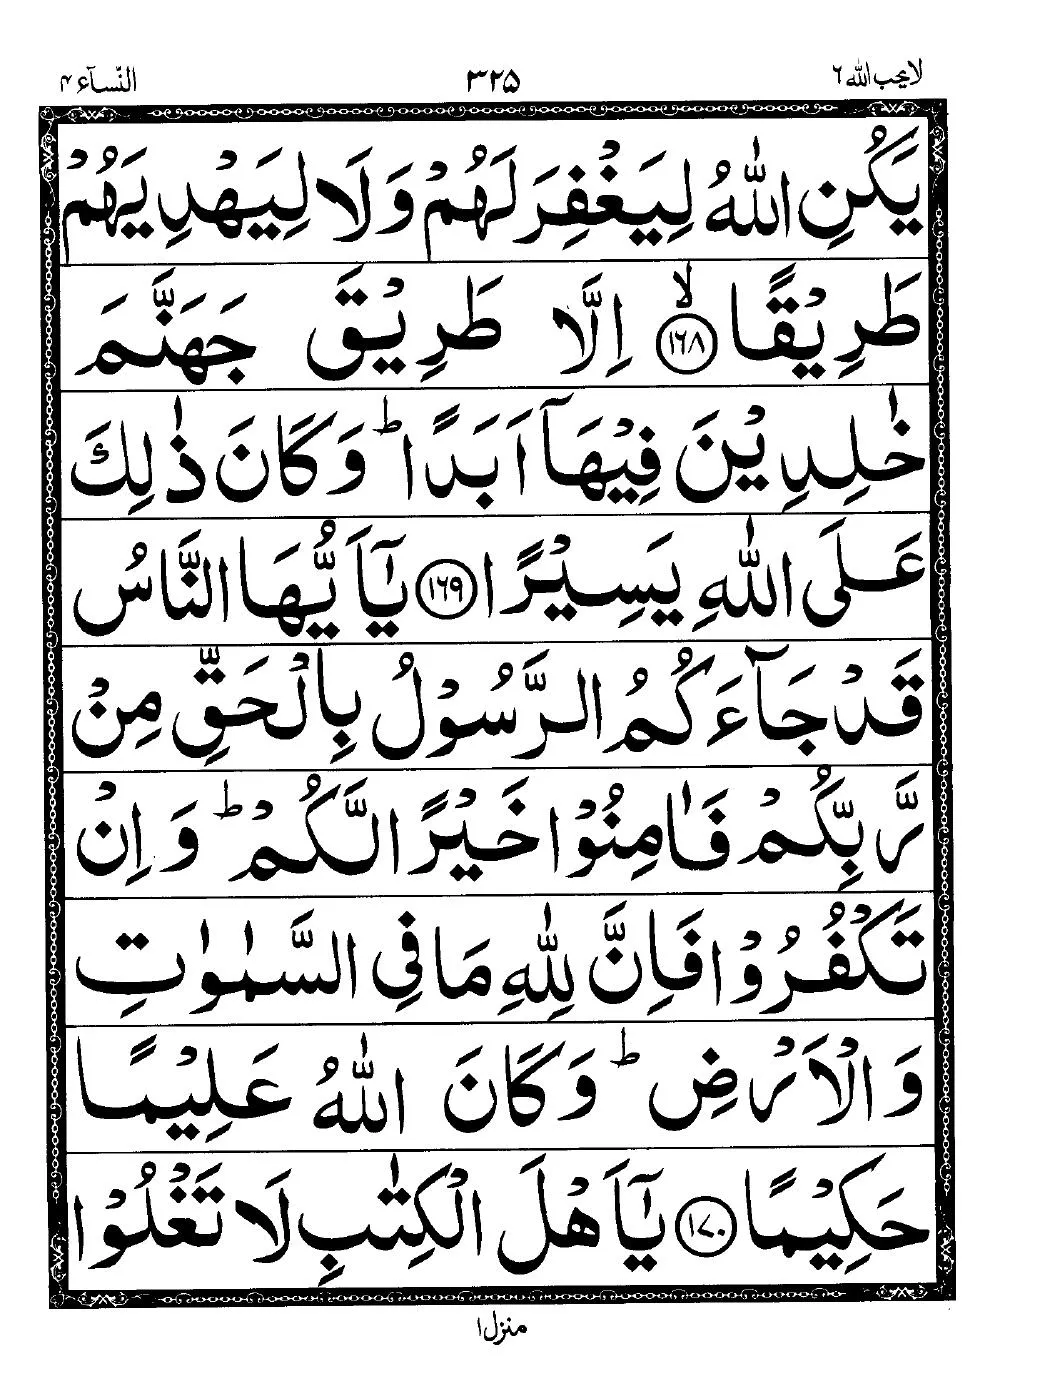 لا یحب اللہ ۶
۳۲۵
النسآء ۴
يَكُنِ اللّٰهُ لِيَغْفِرَ لَهُمْ وَلَا لِيَهْدِيَهُمْ
طَرِيْقًا ۙ‏﴿۱۶۸﴾ اِلَّا طَرِيْقَ جَهَنَّمَ
خٰلِدِيْنَ فِيْهَآ اَبَدًا ؕ وَكَانَ ذٰلِكَ
عَلَى اللّٰهِ يَسِيْرًا ﴿۱۶۹﴾ يٰٓاَيُّهَا النَّاسُ
قَدْ جَآءَكُمُ الرَّسُوْلُ بِالْحَقِّ مِنْ
رَّبِّكُمْ فَاٰمِنُوْا خَيْرًا لَّكُمْ ؕ وَاِنْ
تَكْفُرُوْا فَاِنَّ لِلّٰهِ مَا فِى السَّمٰوٰتِ
وَالْاَرْضِ ؕ وَكَانَ اللّٰهُ عَلِيْمًا
حَكِيْمًا ﴿۱۷۰﴾ يٰٓاَهْلَ الْكِتٰبِ لَا تَغْلُوْا
منزل ۱